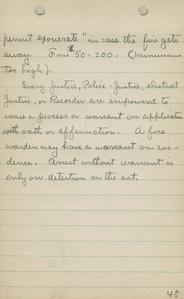 permit exonerate "in case the fire gets
away. Fine $50-200. (minimum
too high).
Every Justice, Police-Justice, District
Justice, or Recorder are empowered to
issue a process or warrant on application
with oath or affirmation. A fire
warden may have a warrant on evi-
dence. Arrest without warrant is
only on detection in the act.
45